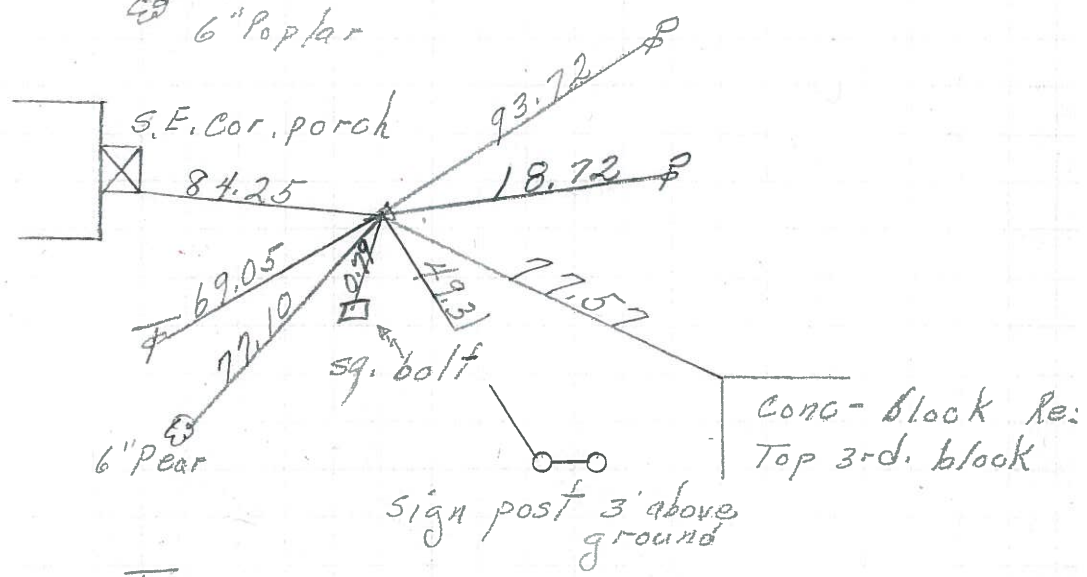 6" Poplar
93.72
S.E. Cor. porch
84.25
18.72
69.05
77.10
0.79
49.31
77.57
sq. bolt
6" Pear
Conc- block Re
Top 3rd. block
Sign post 3' above
ground